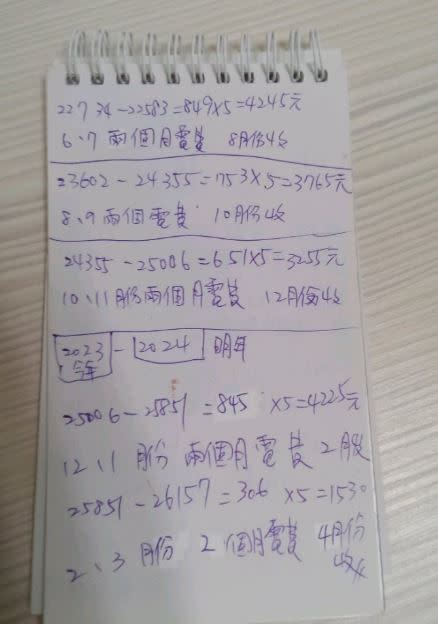 22734-22583=849×5=4245元
6、7 兩個月電費 8月份收
23602-24355=753×5=3765元
8、9 兩個電費 10月份收
24355-25006=651×5=3255元
10、11月份兩個月電費 12月份收
2023 - 2024 明年
今年
25006-25851=845 ×5=4225元
12、1 月份 兩個月電費 2月收
25851-26157=306 ×5=1530
2、3 月份 2個月電費 4月份
收